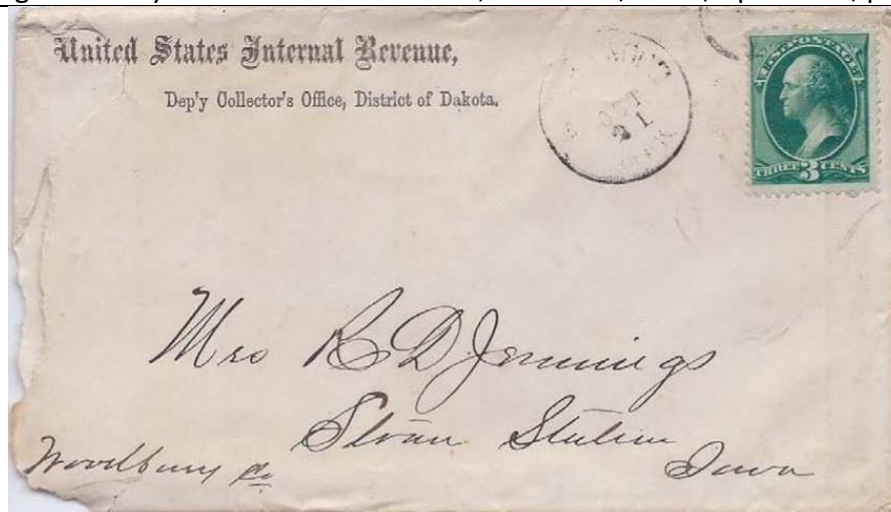 United States Internal Revenue,
Dep'y Collector's Office, District of Dakota.
OCT
21
U.S. POSTAGE
THREE 3 CENTS
Mrs R D Jennings
Sloan Station
Iowa
Woodbury Co